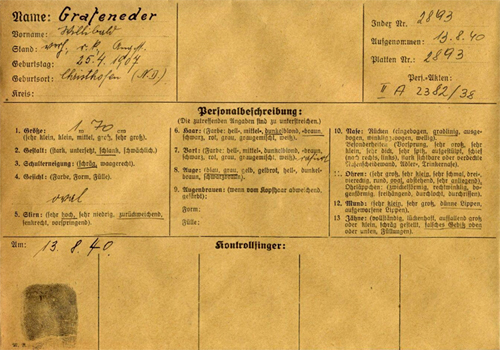 Name: Grafeneder
Vorname: Willibald
Stand:
Geburtstag: 25.4.1907
Geburtsort: Christhofen (N.D.)
Kreis:
Index Nr. 2893
Aufgenommen: 13.8.40
Platten Nr. 2893
Pers.-Akten:
II A 2382/38
Personalbeschreibung:
(Die zutreffenden Angaben sind zu unterstreichen.)
1. Größe: 1 m 70 cm
(sehr klein, klein, mittel, groß, sehr groß).
2. Gestalt: (stark, untersetzt, schlank, schwächlich).
3. Schulterneigung: (schräg, waagerecht).
4. Gesicht: (Farbe: Form, Fülle)
oval
5. Stirn: (sehr hoch, sehr niedrig, zurückweichend,
senkrecht, vorspringend).
6. Haar: (Farbe: hell-, mittel-, dunkelblond, -braun,
schwarz, rot, grau, graugemischt, weiß).
7. Bart: (Farbe: hell-, mittel-, dunkelblond, -braun,
schwarz, rot, grau, graugemischt, weiß). rasiert
8. Auge: (blau, grau, gelb, gelbrot, hell-, dunkel-
braun, schwarzbraun).
9. Augenbrauen: (wenn vom Kopfhaar abweichend,
gefärbt).
Form:
Fülle:
10. Nase: (Rücken eingebogen, gradlinig, ausge-
bogen, winklig ausgebogen, wellig).
Besonderheiten (Vorsprung, sehr groß, sehr
klein, sehr dick, sehr spitz, aufgestülpt, schief
11. Ohren: (sehr groß, sehr klein, sehr schmal, drei-
eckig, rund, oval, abstehend, sehr anliegend).
12. Mund: (sehr klein, sehr groß, dünne Lippen,
aufgeworfene Lippen).
13. Zähne: (vollständig, lückenhaft, auffallend groß
oder klein, schräg gestellt, falsches Gebiß oben
oder unten, Füllungen).
Am: 13.8.40.
Kontrollfinger: